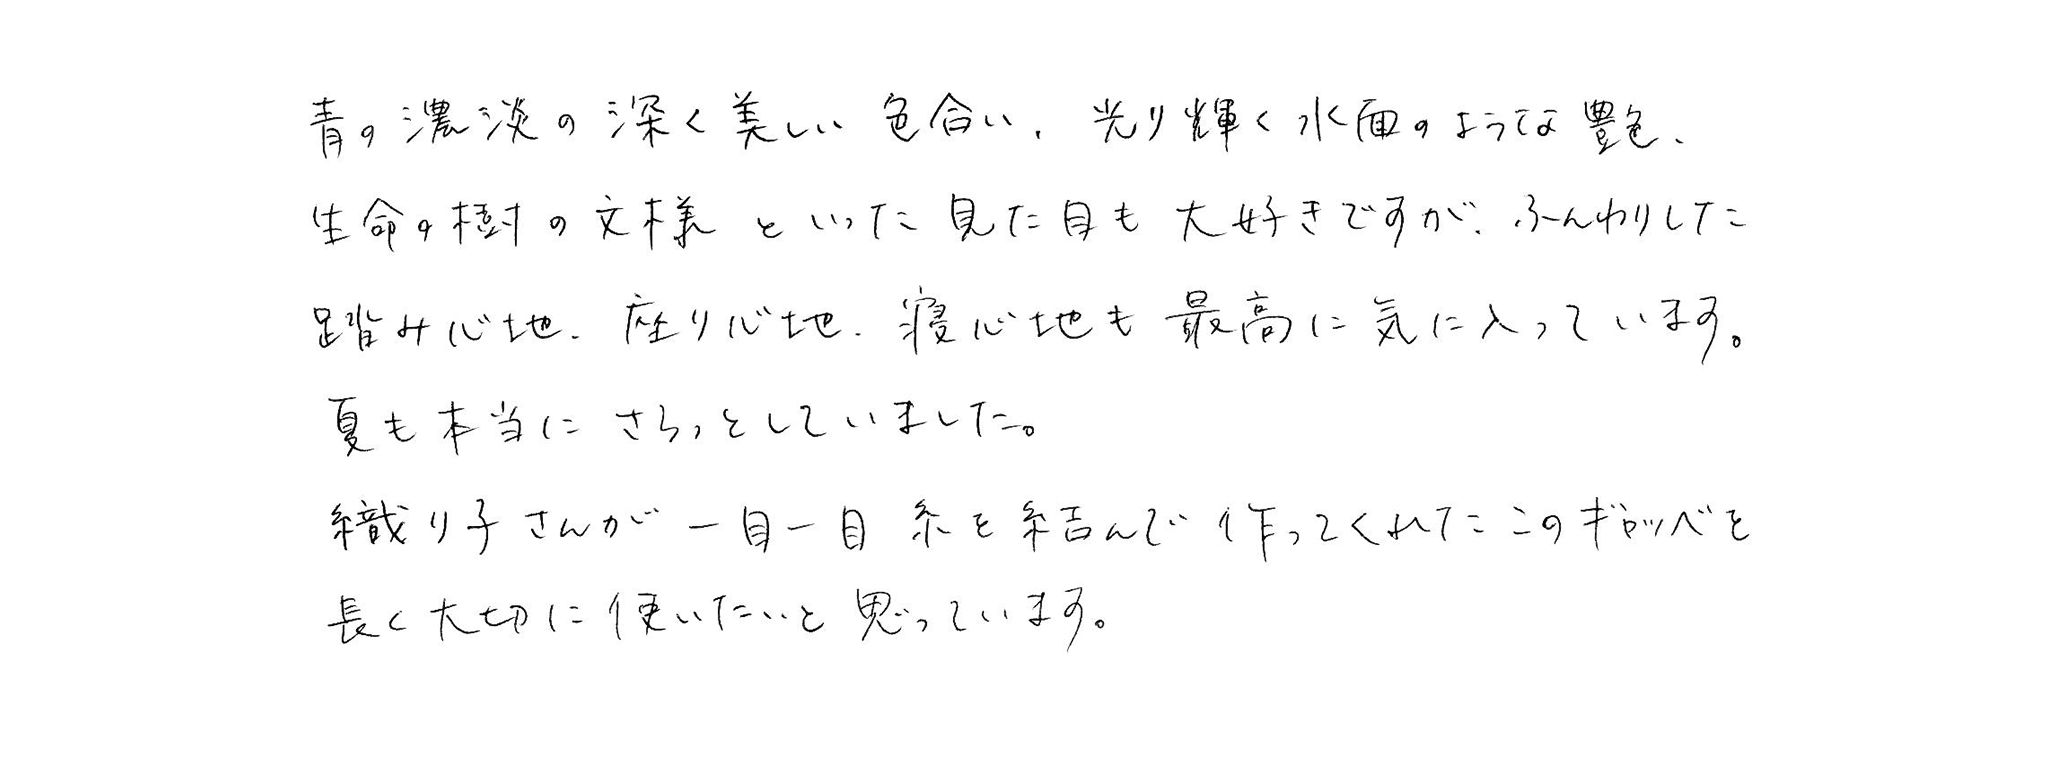 青の濃淡の深く美しい色合い、光り輝く水面のような艶、
生命の樹の文様といった見た目も大好きですが、ふんわりした
踏み心地、座り心地、寝心地も最高に気に入っています。
夏も本当にさらっとしていました。
織り子さんが一目一目糸を結んで作ってくれたこのギャッベを
長く大切に使いたいと思っています。